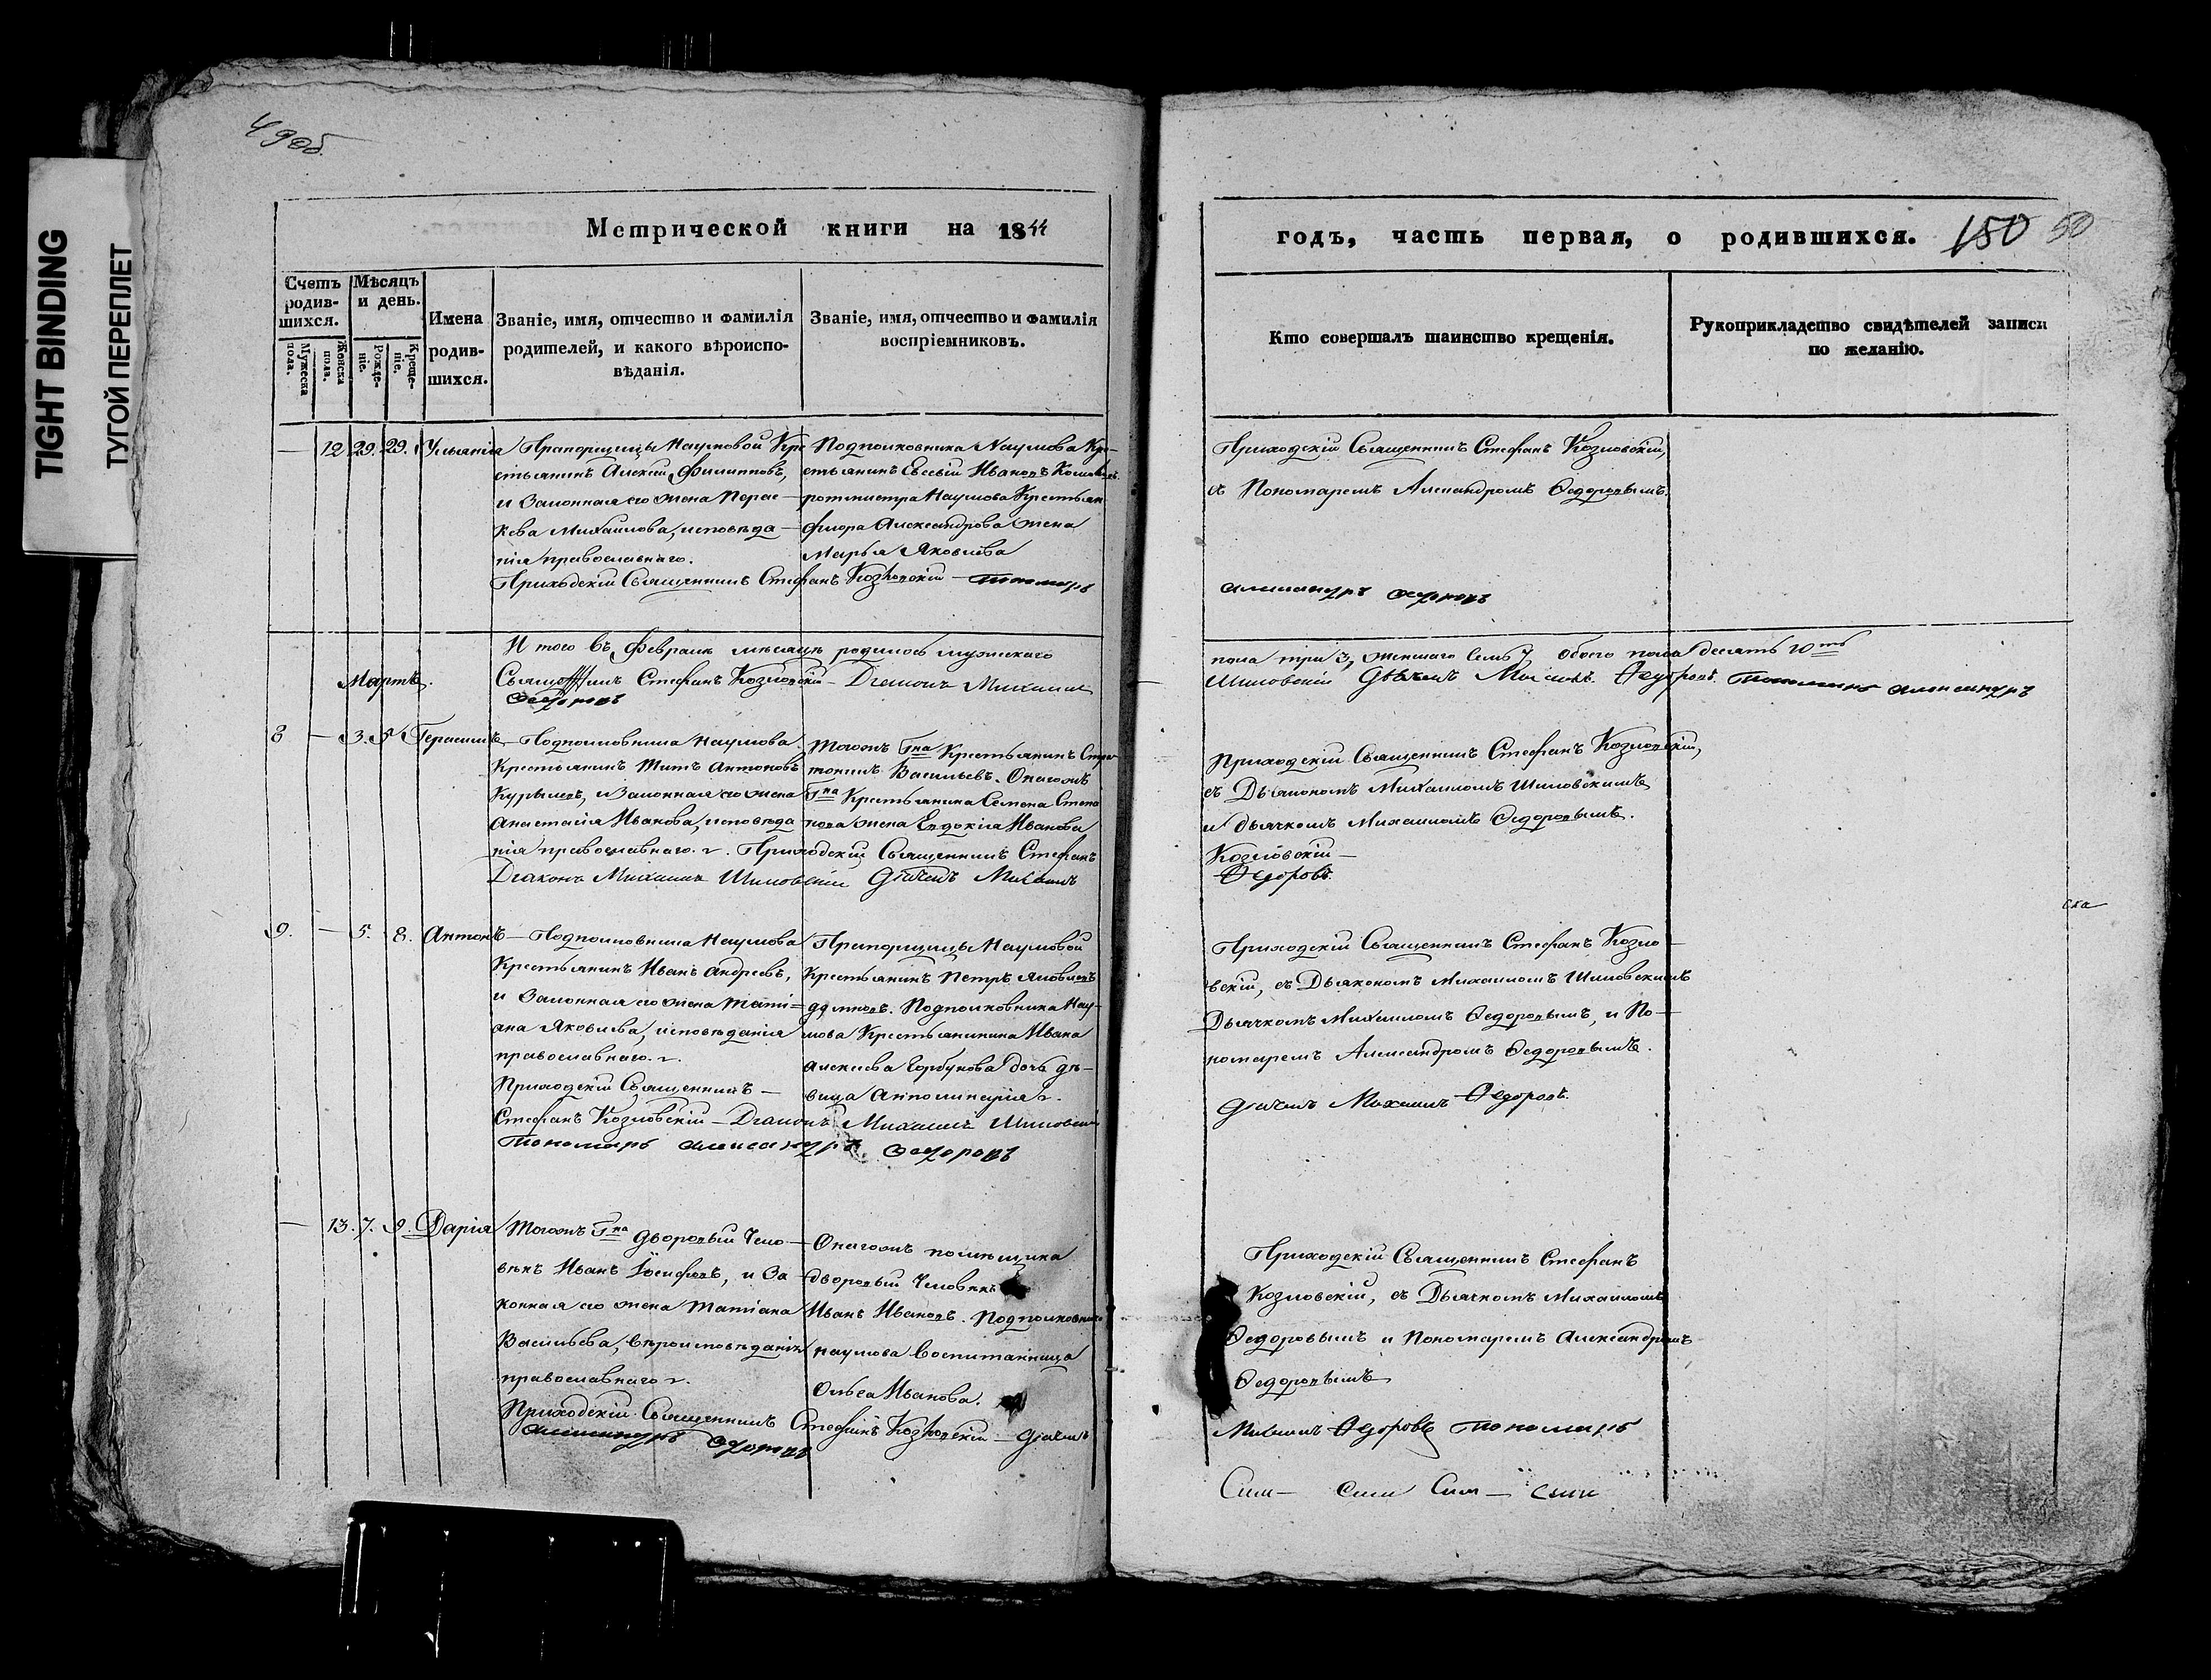 49 об.
TIGHT BINDING
ТУГОЙ ПЕРЕПЛЕТ
Метрической книги на 1844
Счетъ родившихся.
Мужеска пола.
Женска пола.
Мѣсяцъ и день.
Рожденіе.
Крещеніе.
Имена родившихся.
Званіе, имя, отчество и фамилія
родителей, и какого вѣроиспо-
вѣданія.
Званіе, имя, отчество и фамилія
воспріемниковъ.
— 12 29. 29. Ульянія
Прапорщицы Наумовой Кре
стьянинъ Алексѣй Филипповъ,
и Законная его жена Парас-
кева Михайлова, исповѣда-
нія православнаго.
Подполковника Наумова Кре-
стьянинъ Евсѣй Ивановъ
ротмистра Наумова Крестьян
Флора Александрова жена
Марья Яковлева
Приходскій Священникъ Стефанъ Козловскій — Пономарь
И того въ Февралѣ мѣсяцѣ родилось мужескаго
Священникъ Стефанъ Козловскій — Діаконъ Михаилъ
Федоровъ
Мартъ.
8 — 3. 5. Герасимъ
Подполковника Наумова
Крестьянинъ Титъ Антоновъ
и Законная его жена
Анастасія Иванова, исповѣда
нія православнаго. Приходскій Священникъ Стефанъ
Діаконъ Михаилъ Шиловскій Дьячекъ Михаилъ
Тогожъ Гна Крестьянинъ
Васильевъ. Онагожъ
Гна Крестьянина Семена Степа
нова жена Евдокія Иванова
9. — 5. 8. Антонъ
Подполковника Наумова
Крестьянинъ Иванъ Андреевъ,
и Законная его жена Тати=
ана Яковлева, исповѣданія
православнаго.
Приходскій Священникъ —
Стефанъ Козловскій — Діаконъ Михаилъ Шиловскій
Пономарь Александръ Федоровъ
Прапорщицы Наумовой
Крестьянинъ Петръ Яковлевъ
Подполковника Нау-
мова Крестьянинина Ивана
Алексѣева Горбунова дочь дѣ-
вица Апполинарія.
— 13. 7. 9. Дарія
Тогожъ Гна дворовый Чело-
вѣкъ Иванъ Іосифовъ, и За-
конная его жена Татіана
Васильева, вѣроисповѣданія
православнаго.
Приходскій Священникъ Стефанъ Козловскій — Дьячекъ
Александръ Федоровъ
Онагожъ помѣщика
дворовый Человѣкъ
Иванъ Ивановъ. Подполковника
Наумова Воспитанница
Ольга Иванова.
годъ, часть первая, о родившихся. 150 50
Кто совершалъ таинство крещенія.
Рукоприкладство свидѣтелей записи
по желанію.
Приходскій Священникъ Стефанъ Козловскій,
съ Пономаремъ Александромъ Федоровымъ.
Александръ Федоровъ
пола три 3, женскаго семь 7, обоего пола десять 10ть
Шиловскій Дьячекъ Михаилъ Федоровъ. Пономарь Александръ
Приходскій Священникъ Стефанъ Козловскій,
съ Дьякономъ Михаиломъ Шиловскимъ
и дьячкомъ Михаиломъ Федоровымъ.
Козловскій —
Федоровъ.
Приходскій Священникъ Стефанъ Козло-
вскій, съ Дьякономъ Михаиломъ Шиловскимъ
Дьячкомъ Михаиломъ Федоровымъ, и По-
номаремъ Александромъ Федоровымъ.
Дьячекъ Михаилъ Федоровъ.
Приходскій Священникъ Стефанъ
Козловскій, съ Дьячкомъ Михаиломъ
Федоровымъ и Пономаремъ Александромъ
Федоровымъ
Михаилъ Федоровъ Пономарь